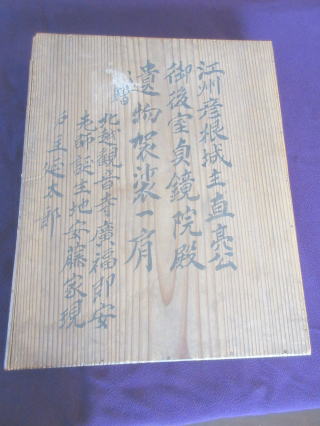 江州彦根城主直亮公
御後室貞鏡院殿
遺物袈裟一肩
贈
北越観音寺廣福即安
老師誕生地安藤家現
戸主延太郎